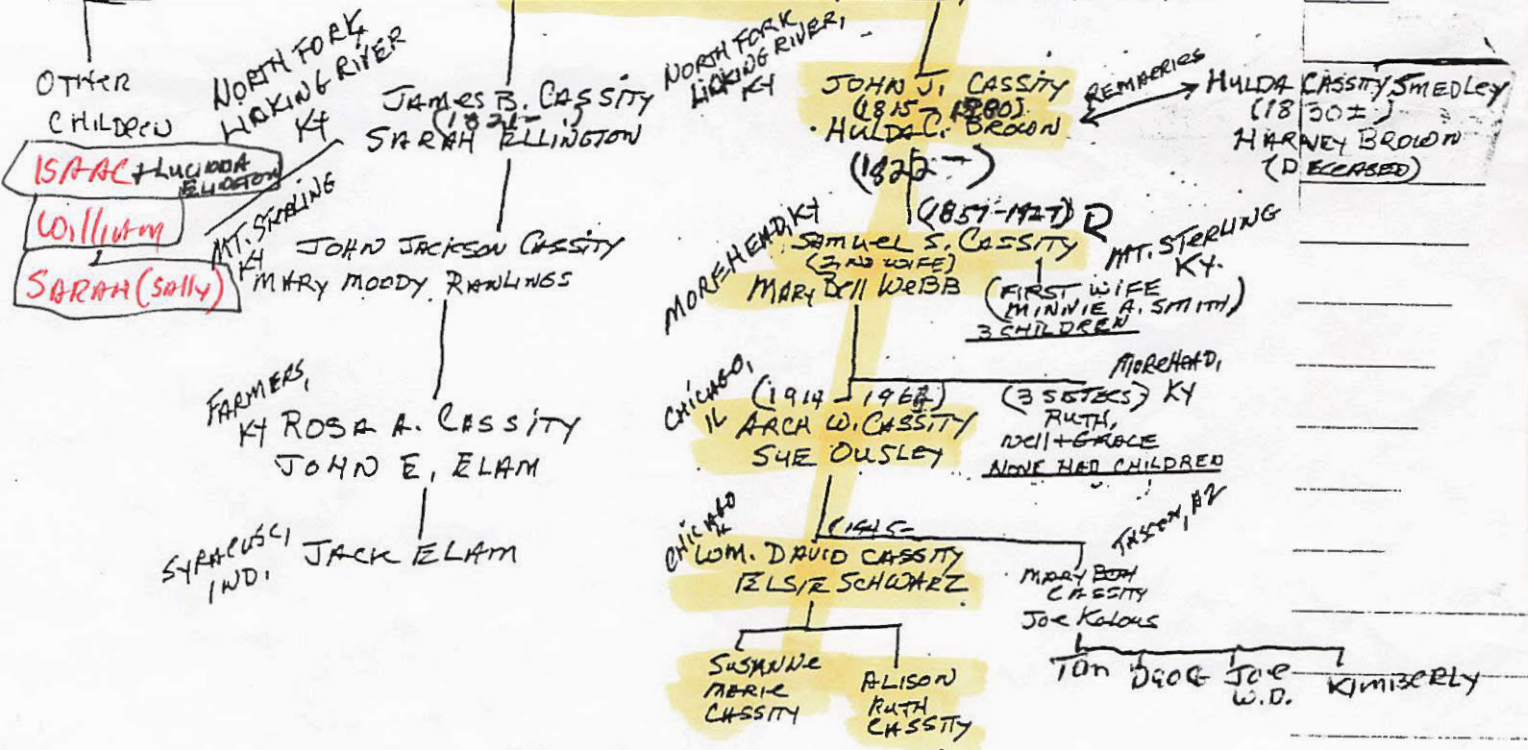 OTHER
CHILDREN
ISAAC + LUCINDA
ELLINGTON
William
SARAH (SALLY)
NORTH FORK,
LICKING RIVER
KY
JAMES B. CASSITY
(1821- )
SARAH ELLINGTON
MT. STERLING
KY
JOHN JACKSON CASSITY
MARY MOODY RAWLINGS
FARMERS,
KY
ROSA A. CASSITY
JOHN E. ELAM
SYRACUSE,
IND.
JACK ELAM
NORTH FORK
LICKING RIVER,
KY
JOHN J. CASSITY
(1815-1880)
HULDA C. BROWN
(1822- )
REMARRIES
HULDA CASSITY SMEDLEY
(1830±)
HARVEY BROWN
(DECEASED)
MOREHEAD, KY
(1857-1927) D
SAMUEL S. CASSITY
(2ND WIFE)
MARY BELL WEBB
MT. STERLING
KY.
(FIRST WIFE
MINNIE A. SMITH)
3 CHILDREN
CHICAGO,
IL
ARCH W. CASSITY
SUE OUSLEY
MOREHEAD,
KY
(3 SISTERS)
RUTH,
NELL + GRACE
NONE HAD CHILDREN
CHICAGO
IL
(1945-
WM. DAVID CASSITY
ELSIE SCHWARZ
TUCSON, AZ
MARY BETH
CASSITY
JOE Kalous
SUSANNE
MARIE
CASSITY
ALISON
RUTH
CASSITY
TOM
DOUG
JOE
W.D.
KIMBERLY